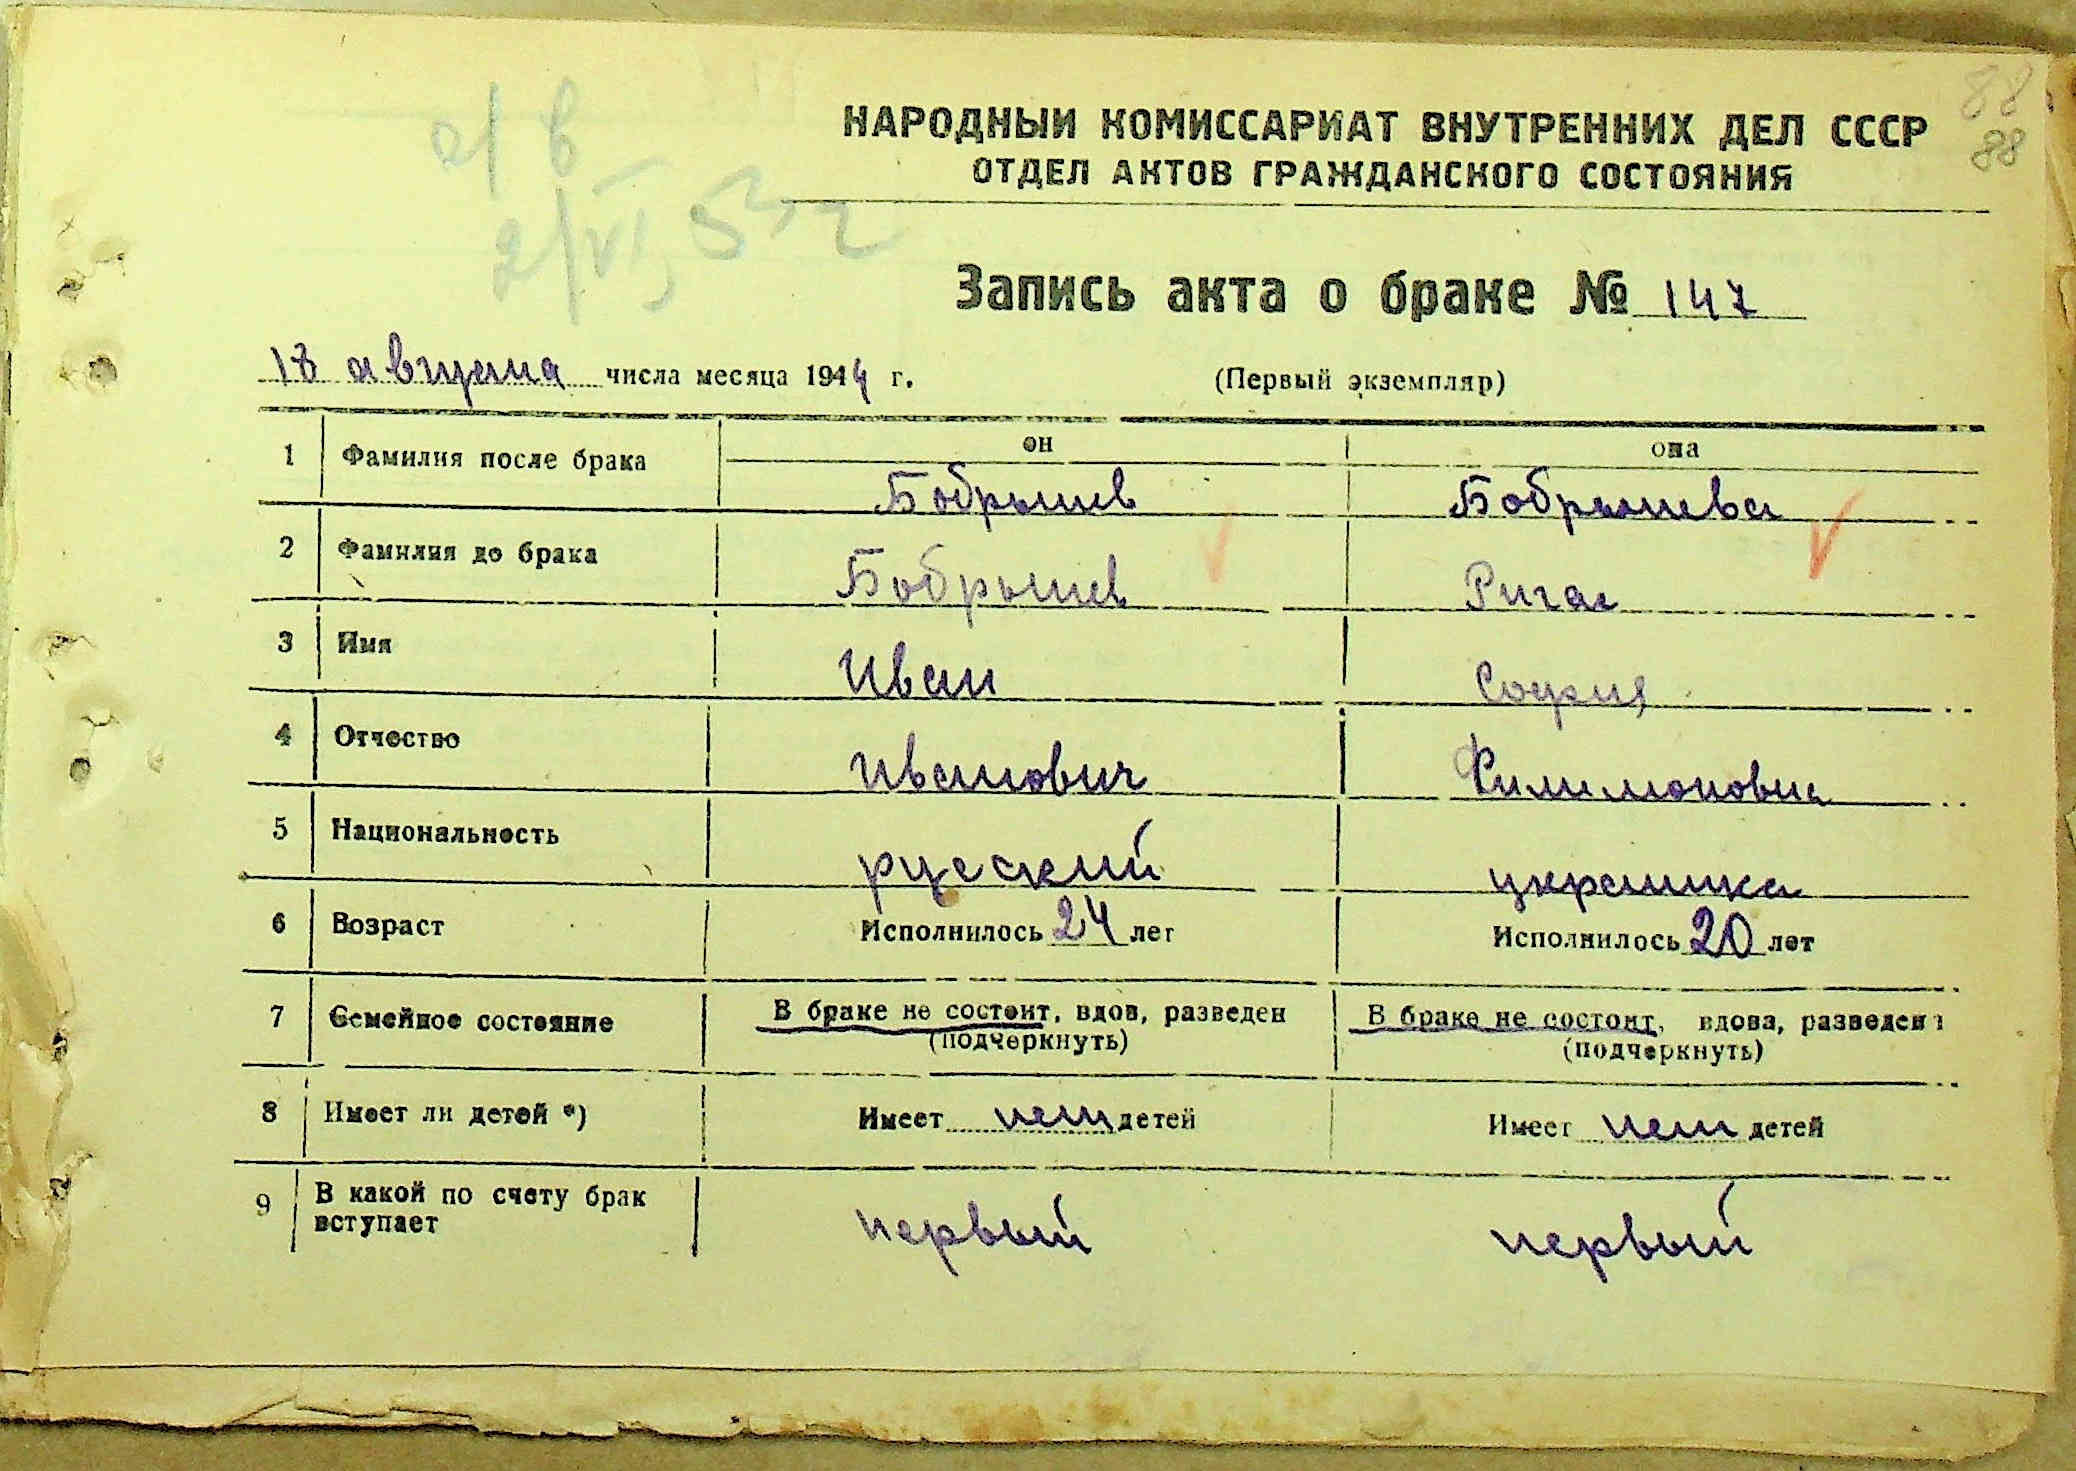 88
88
а/в
2/VI, 53 г
НАРОДНЫЙ КОМИССАРИАТ ВНУТРЕННИХ ДЕЛ СССР
ОТДЕЛ АКТОВ ГРАЖДАНСКОГО СОСТОЯНИЯ
Запись акта о браке № 147
18 августа числа месяца 1944 г.
(Первый экземпляр)
он она
1 Фамилия после брака Бобрышев Бобрышева
2 Фамилия до брака Бобрышев Ригас
3 Имя Иван София
4 Отчество Иванович Филимоновна
5 Национальность русский украинка
6 Возраст Исполнилось 24 лет Исполнилось 20 лет
7 Семейное состояние В браке не состоит, вдов, разведен В браке не состоит, вдова, разведена
(подчеркнуть) (подчеркнуть)
8 Имеет ли детей *) Имеет нет детей Имеет нет детей
9 В какой по счету брак
вступает первый первый